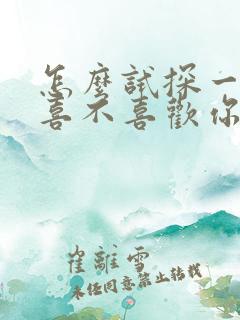 怎麼試探一
喜不喜歡你
崔離雪
未经同意禁止转载